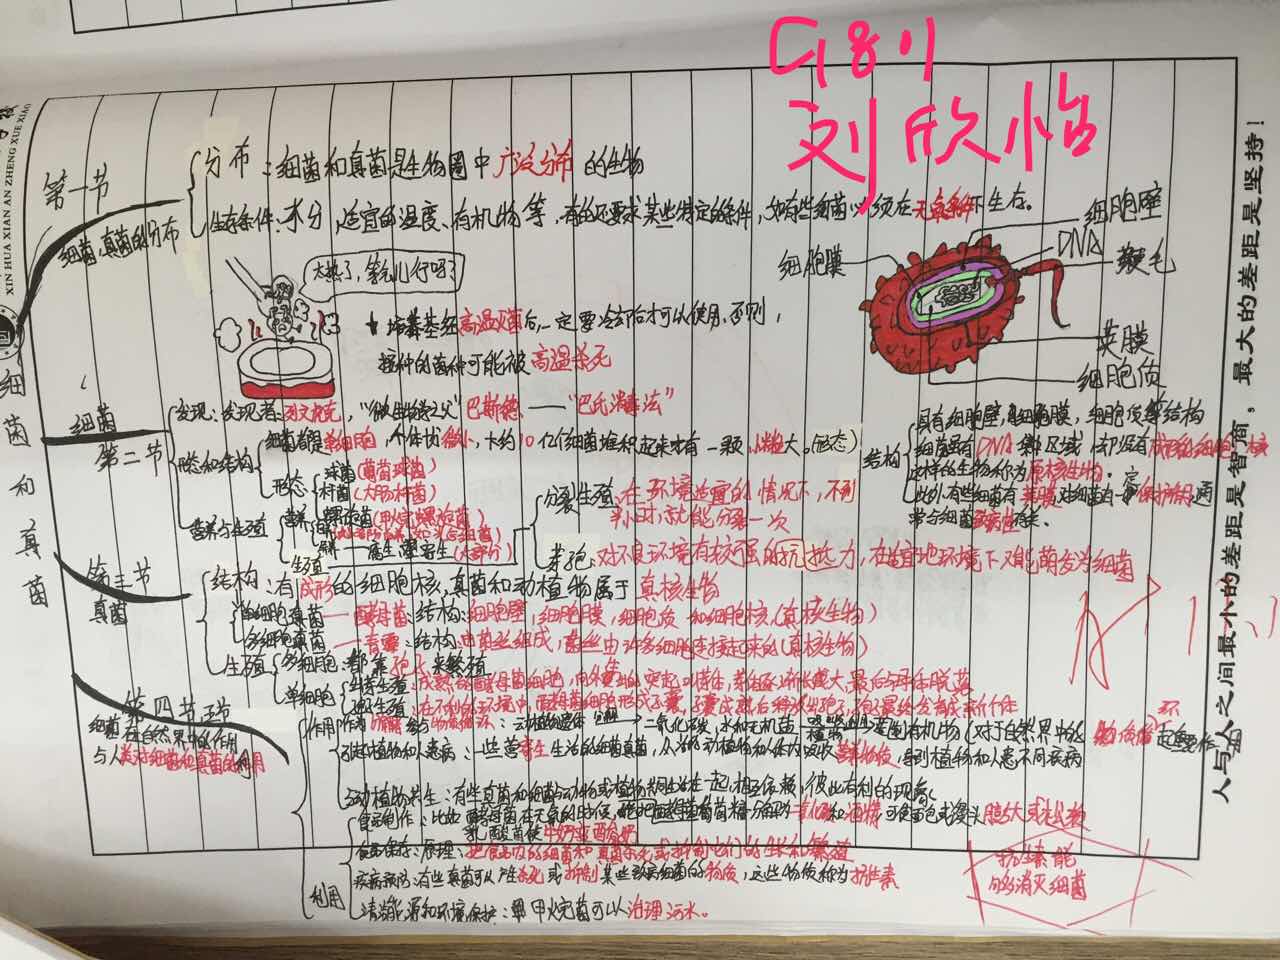 刘欣怡
XIN HUA XIAN AN ZHENG XUE XIAO
人与人之间最小的差距是智商。最大的差距是坚持！
细菌和真菌
第一节
细菌、真菌的分布
分布：细菌和真菌是生物圈中广泛分布的生物
生存条件：水分，适宜的温度、有机物等，有的还要求某些特定的条件，如有些细菌必须在无氧条件下生存。
太热了，等会儿行吗？
培养基经高温灭菌后，一定要冷却后才可以使用，否则，
接种的菌种可能被高温杀死
细胞膜
细胞壁
DNA
鞭毛
荚膜
细胞质
细菌
第二节
发现：发现者：列文虎克，“微生物学之父”巴斯德 —— “巴氏消毒法”
形态和结构
细菌都是单细胞，个体微小，大约10亿个细菌堆积起来才有一颗小米粒大。（形态）
形态
球菌（葡萄球菌）
杆菌（大肠杆菌）
螺旋菌
结构
具有细胞壁，细胞膜，细胞质等结构
细菌虽有DNA集中区域，却没有成形的细胞核
这样的生物称为原核生物
此外有些细菌有荚膜，对细菌的一定保护作用，通
常与细菌致病性有关。
营养与生殖
营养
生殖
分裂生殖：在环境适宜的情况下，不到
半小时就能分裂一次
芽孢：对不良环境有较强的抵抗力，在适宜的环境下又能萌发为细菌
第三节
真菌
结构：有成形的细胞核，真菌和动植物属于真核生物
单细胞真菌——酵母菌：结构：细胞壁，细胞膜，细胞质和细胞核（真核生物）
多细胞真菌——青霉：结构：由菌丝组成，菌丝由许多细胞连接起来的（真核生物）
生殖
多细胞：都靠孢子来繁殖
单细胞
出芽生殖：成熟的酵母菌细胞，向外生出突起叫芽体，芽体逐渐长大，最后与母体脱落
孢子生殖
第四节
细菌在自然界中的作用
与人类对细菌和真菌的利用
作用
引起动植物和人患病：一些营寄生生活的细菌真菌，从活的动植物和人体内吸收营养物质，导致植物和人患不同疾病
与动植物共生：有些真菌和细菌与动物或植物共同生活在一起，相互依赖，彼此有利的现象
利用
食品制作：比如
食品保存：原理：把食品内的细菌和真菌杀死或抑制它们的生长和繁殖
疾病预防：有些真菌可以产生杀死或抑制某些致病细菌的物质，这些物质称为抗生素
清洁能源和环境保护：甲烷菌可以治理污水。
抗生素能
够消灭细菌